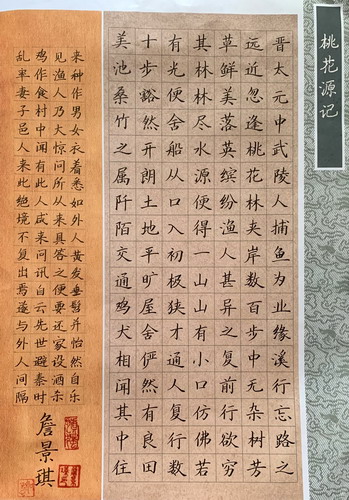 桃花源记
晋太元中武陵人捕鱼为业缘溪行忘路之
远近忽逢桃花林夹岸数百步中无杂树芳
草鲜美落英缤纷渔人甚异之复前行欲穷
其林林尽水源便得一山山有小口仿佛若
有光便舍船从口入初极狭才通人复行数
十步豁然开朗土地平旷屋舍俨然有良田
美池桑竹之属阡陌交通鸡犬相闻其中往
来种作男女衣着悉如外人黄发垂髫并怡然自乐
见渔人乃大惊问所从来具答之便要还家设酒杀
鸡作食村中闻有此人咸来问讯自云先世避秦时
乱率妻子邑人来此绝境不复出焉遂与外人间隔
詹景琪